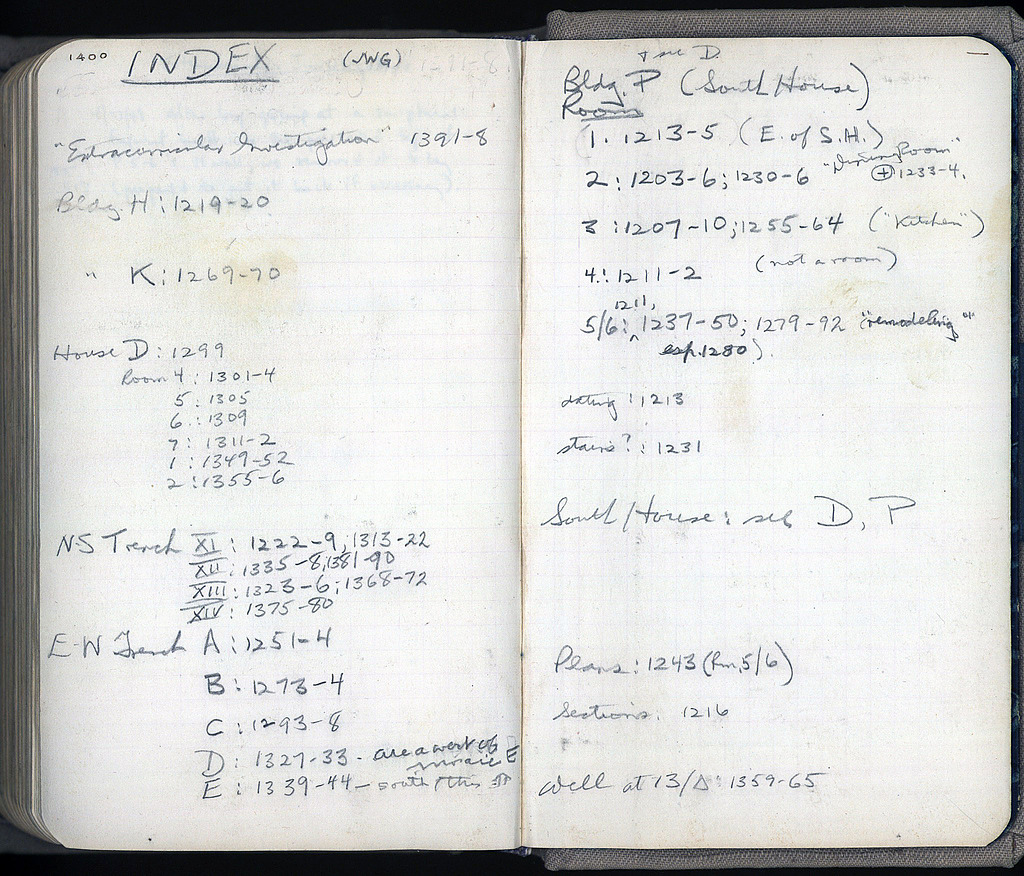 1400 INDEX (JWG)
"Extracurricular Investigation" 1391-8
Bldg. H : 1219-20
" K : 1269-70
House D : 1299
Room 4 : 1301-4
5 : 1305
6 : 1309
7 : 1311-2
1 : 1349-52
2 : 1355-6
N-S Trench XI : 1222-9; 1313-22
XII : 1335-8; 1381-90
XIII : 1323-6; 1368-72
XIV : 1375-80
E-W Trench A : 1251-4
B : 1273-4
C : 1293-8
D : 1327-33 - area west of
mosaic
E : 1339-44 - south / this
+ see D.
Bldg. P (South House)
Room
1. 1213-5 (E. of S.H.)
"Dining Room"
2 : 1203-6; 1230-6 ⊕ 1233-4.
3 : 1207-10; 1255-64 ("Kitchen")
4 : 1211-2 (not a room)
1211,
5/6 : 1237-50; 1279-92 ("remodeling"
esp. 1280).
dating : 1213
stairs? : 1231
South House : see D, P
Plans : 1243 (Rm. 5/6)
Sections : 1216
Well at 13/Δ : 1359-65